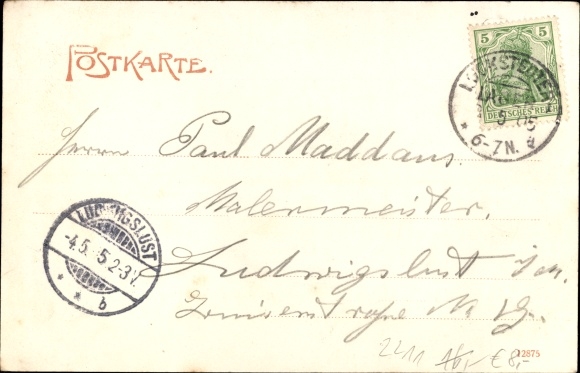 POSTKARTE.
5 5
DEUTSCHES REICH
LOCKSTEDTER
LAGER
6-7N.
* a
Herrn Paul Maddaus.
Malermeister.
LUDWIGSLUST
-4.5. 5.2-3V.
* * b
Ludwigslust i/m.
No 19.
2211 €8,-
12875